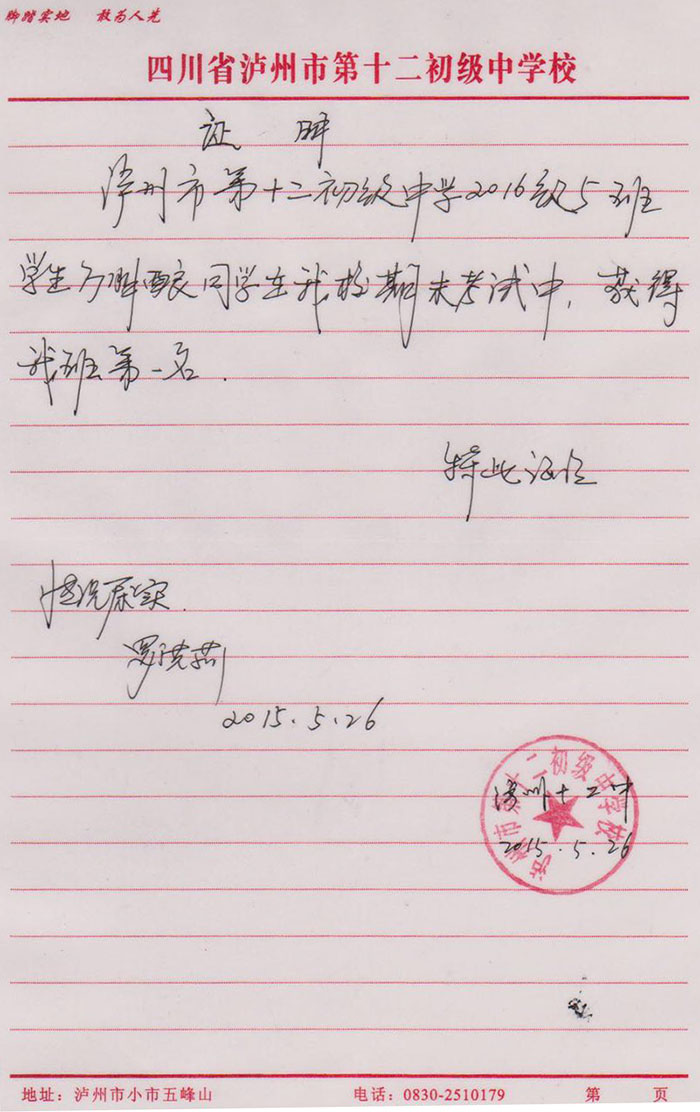 脚踏实地 敢为人先
四川省泸州市第十二初级中学校
证 明
泸州市第十二初级中学2016级5班
学生 同学在我校期末考试中，获得
我班第一名．
特此证明
情况属实．
罗洪燕
2015.5.26
泸州市第十二初级中学校
泸州十二中
2015.5.26
地址：泸州市小市五峰山 电话：0830-2510179 第 页